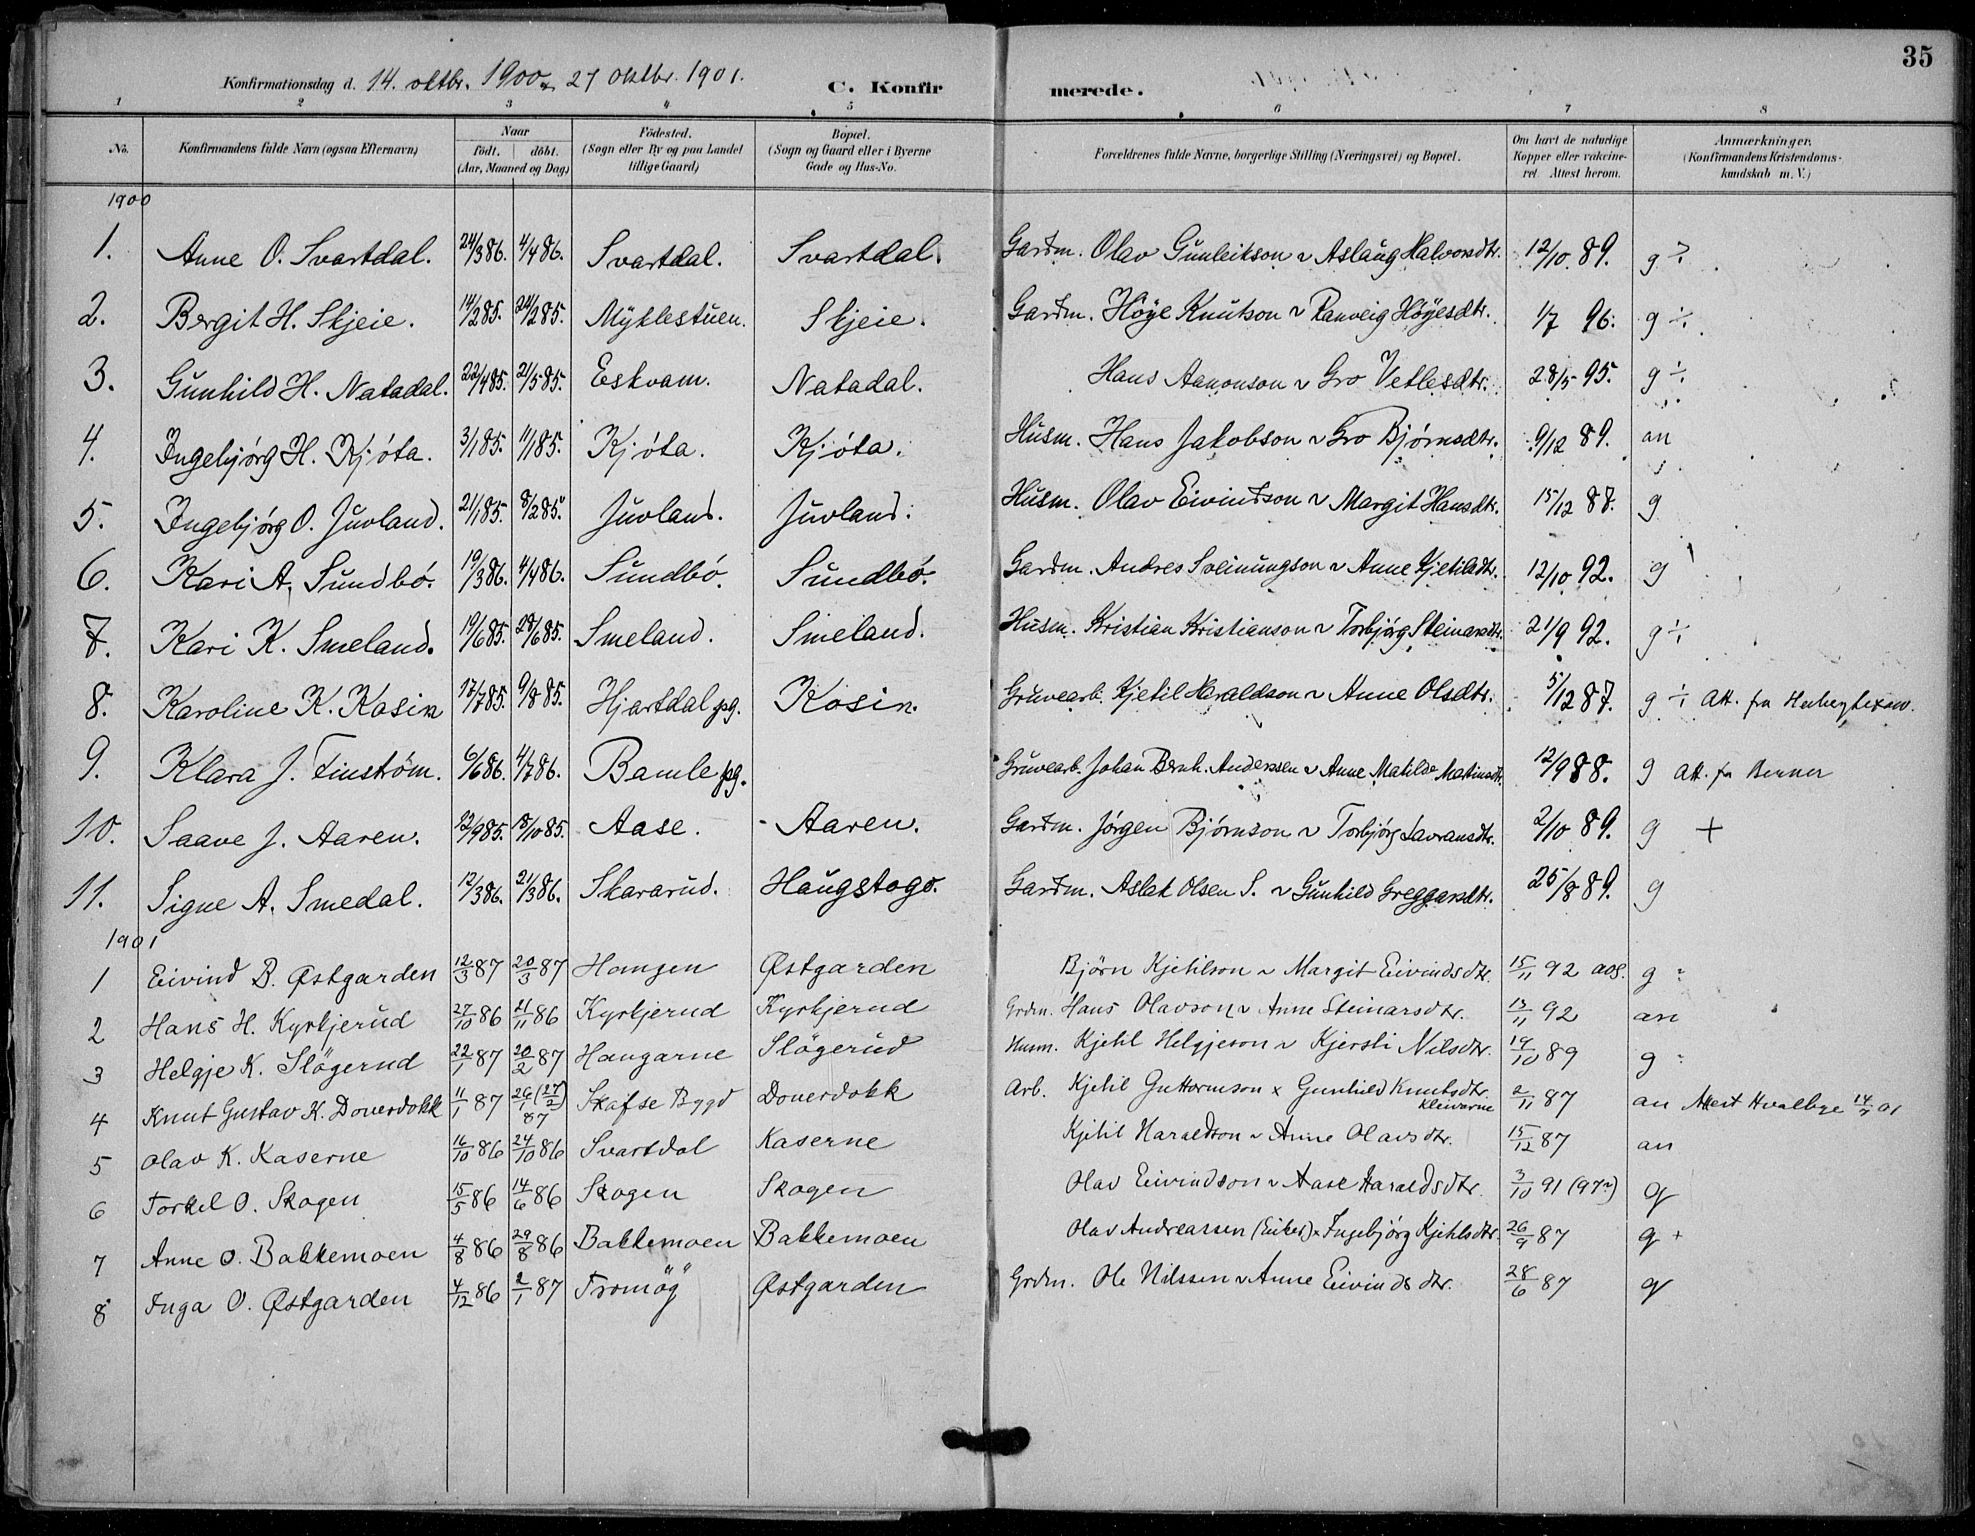 35
Konfirmationsdag d. 14. oktbr. 1900 27 Oktbr. 1901. C. Konfirmerede.
1 2 3 4 5 6 7 8
No. Konfirmandens fulde Navn (ogsaa Efternavn) Naar födt. döbt. (Aar, Maaned og Dag) Födested. (Sogn eller By og paa Landet tillige Gaard) Bopæl. (Sogn og Gaard eller i Byerne Gade og Hus-No. Forældrenes fulde Navne, borgerlige Stilling (Næringsvei) og Bopæl. Om havt de naturlige Kopper eller vakcineret. Attest herom. Anmærkninger. (Konfirmandens Kristendomskundskab m. V.)
1900
1. Anne O. Svartdal. 24/3 86. 4/4 86. Svartdal. Svartdal. Gardm. Olav Gunleikson & Aslaug Halvorsdtr. 12/10 89. g ÷
2. Bergit H. Skjeie. 14/2 85. 22/2 85. Myklestuen. Skjeie. Gardm. Höye Knutson & Ranveig Höyesdtr. 1/7 96. g ÷
3. Gunhild H. Natadal. 22/4 85. 21/5 85. Eskvam. Natadal. Hans Aanonson & Gro Vetlesdtr. 28/5 95. g ÷
4. Ingebjörg H. Kjóta. 3/1 85. 11/1 85. Kjóta. Kjóta. Husm. Hans Jakobson & Gro Bjørnsdtr. 9/12 89. an
5. Ingebjórg O. Juvland. 21/1 85. 8/2 85. Juvland. Juvland. Husm. Olav Eivindson & Margit Hansdtr. 15/12 87. g
6. Kari A. Sundbó. 19/3 86. 4/4 86. Sundbó. Sundbó. Gardm. Andres Sveinungson & Anne Kjetilsdtr. 12/10 92. g
7. Kari K. Smeland. 19/6 85. 28/6 85. Smeland. Smeland. Husm. Kristian Kristianson & Torbjórg Steinarsdtr. 21/9 92. g ÷
8. Karoline K. Kosin 17/7 85. 9/8 85. Hjartdal pg. Kosin. Gruvearb. Kjetil Haraldson & Anne Olsdtr. 5/12 87. g ÷ Att. fra
9. Klara J. Finstrøm. 6/6 86. 4/7 86. Bamle pg. Gruvearb. Johan Bernh. Anderssen & Anne Matilde Martinsdtr. 12/9 88. g Att. fra Berner
10. Saave J. Aaren. 12/9 85. 18/10 85. Aase. Aaren. Gardm. Jórgen Bjórnson & Torbjórg Lavransdtr. 2/10 89. g +
11. Signe A. Smedal. 12/3 86. 21/3 86. Skararud. Haugstogo. Gardm. Aslak Olsen S. & Gunhild Greggarsdtr. 25/8 89. g
1901
1 Eivind B. Østgarden 12/3 87 20/3 87 Haugen Østgarden Bjørn Kjetilson & Margit Eivindsdtr. 15/11 92 aos. g
2 Hans H. Kyrkjerud 27/10 86 21/11 86 Kyrkjerud Kyrkjerud Grdm. Hans Olavson & Anne Steinarsdtr. 13/11 92 an
3 Helgje K. Slögerud 22/1 87 20/2 87 Haugarne Slögerud Husm. Kjetil Helgjeson & Kjersti Nilsdtr. 19/10 89 g
4 Knut Gustav K. Douerdokk 11/1 87 26/1 (27/2) 87 Skafse Bygd Douerdokk Arb. Kjetil Guttormson x Gunhild Knutsdtr. Kleivarne 2/11 87 an Attest Hvalbye 14/7 01
5 Olav K. Kaserne 16/10 86 24/10 86 Svartdal Kaserne Kjetil Haraldson & Anne Olavsdtr. 15/12 87 an
6 Torkel O. Skogen 15/5 86 14/6 86 Skogen Skogen Olav Eivindson & Aase Haraldsdtr. 3/10 91 (97?) g
7 Anne O. Bakkemoen 4/8 86 29/8 86 Bakkemoen Bakkemoen Olav Andreassen (Enkes) x Ingebjørg Kjetilsdtr. 26/9 87 g +
8 Inga O. Østgarden 4/12 86 2/1 87 Tromöy Østgarden Grdm. Ole Nilssen & Anne Eivindsdtr. 28/6 87 g